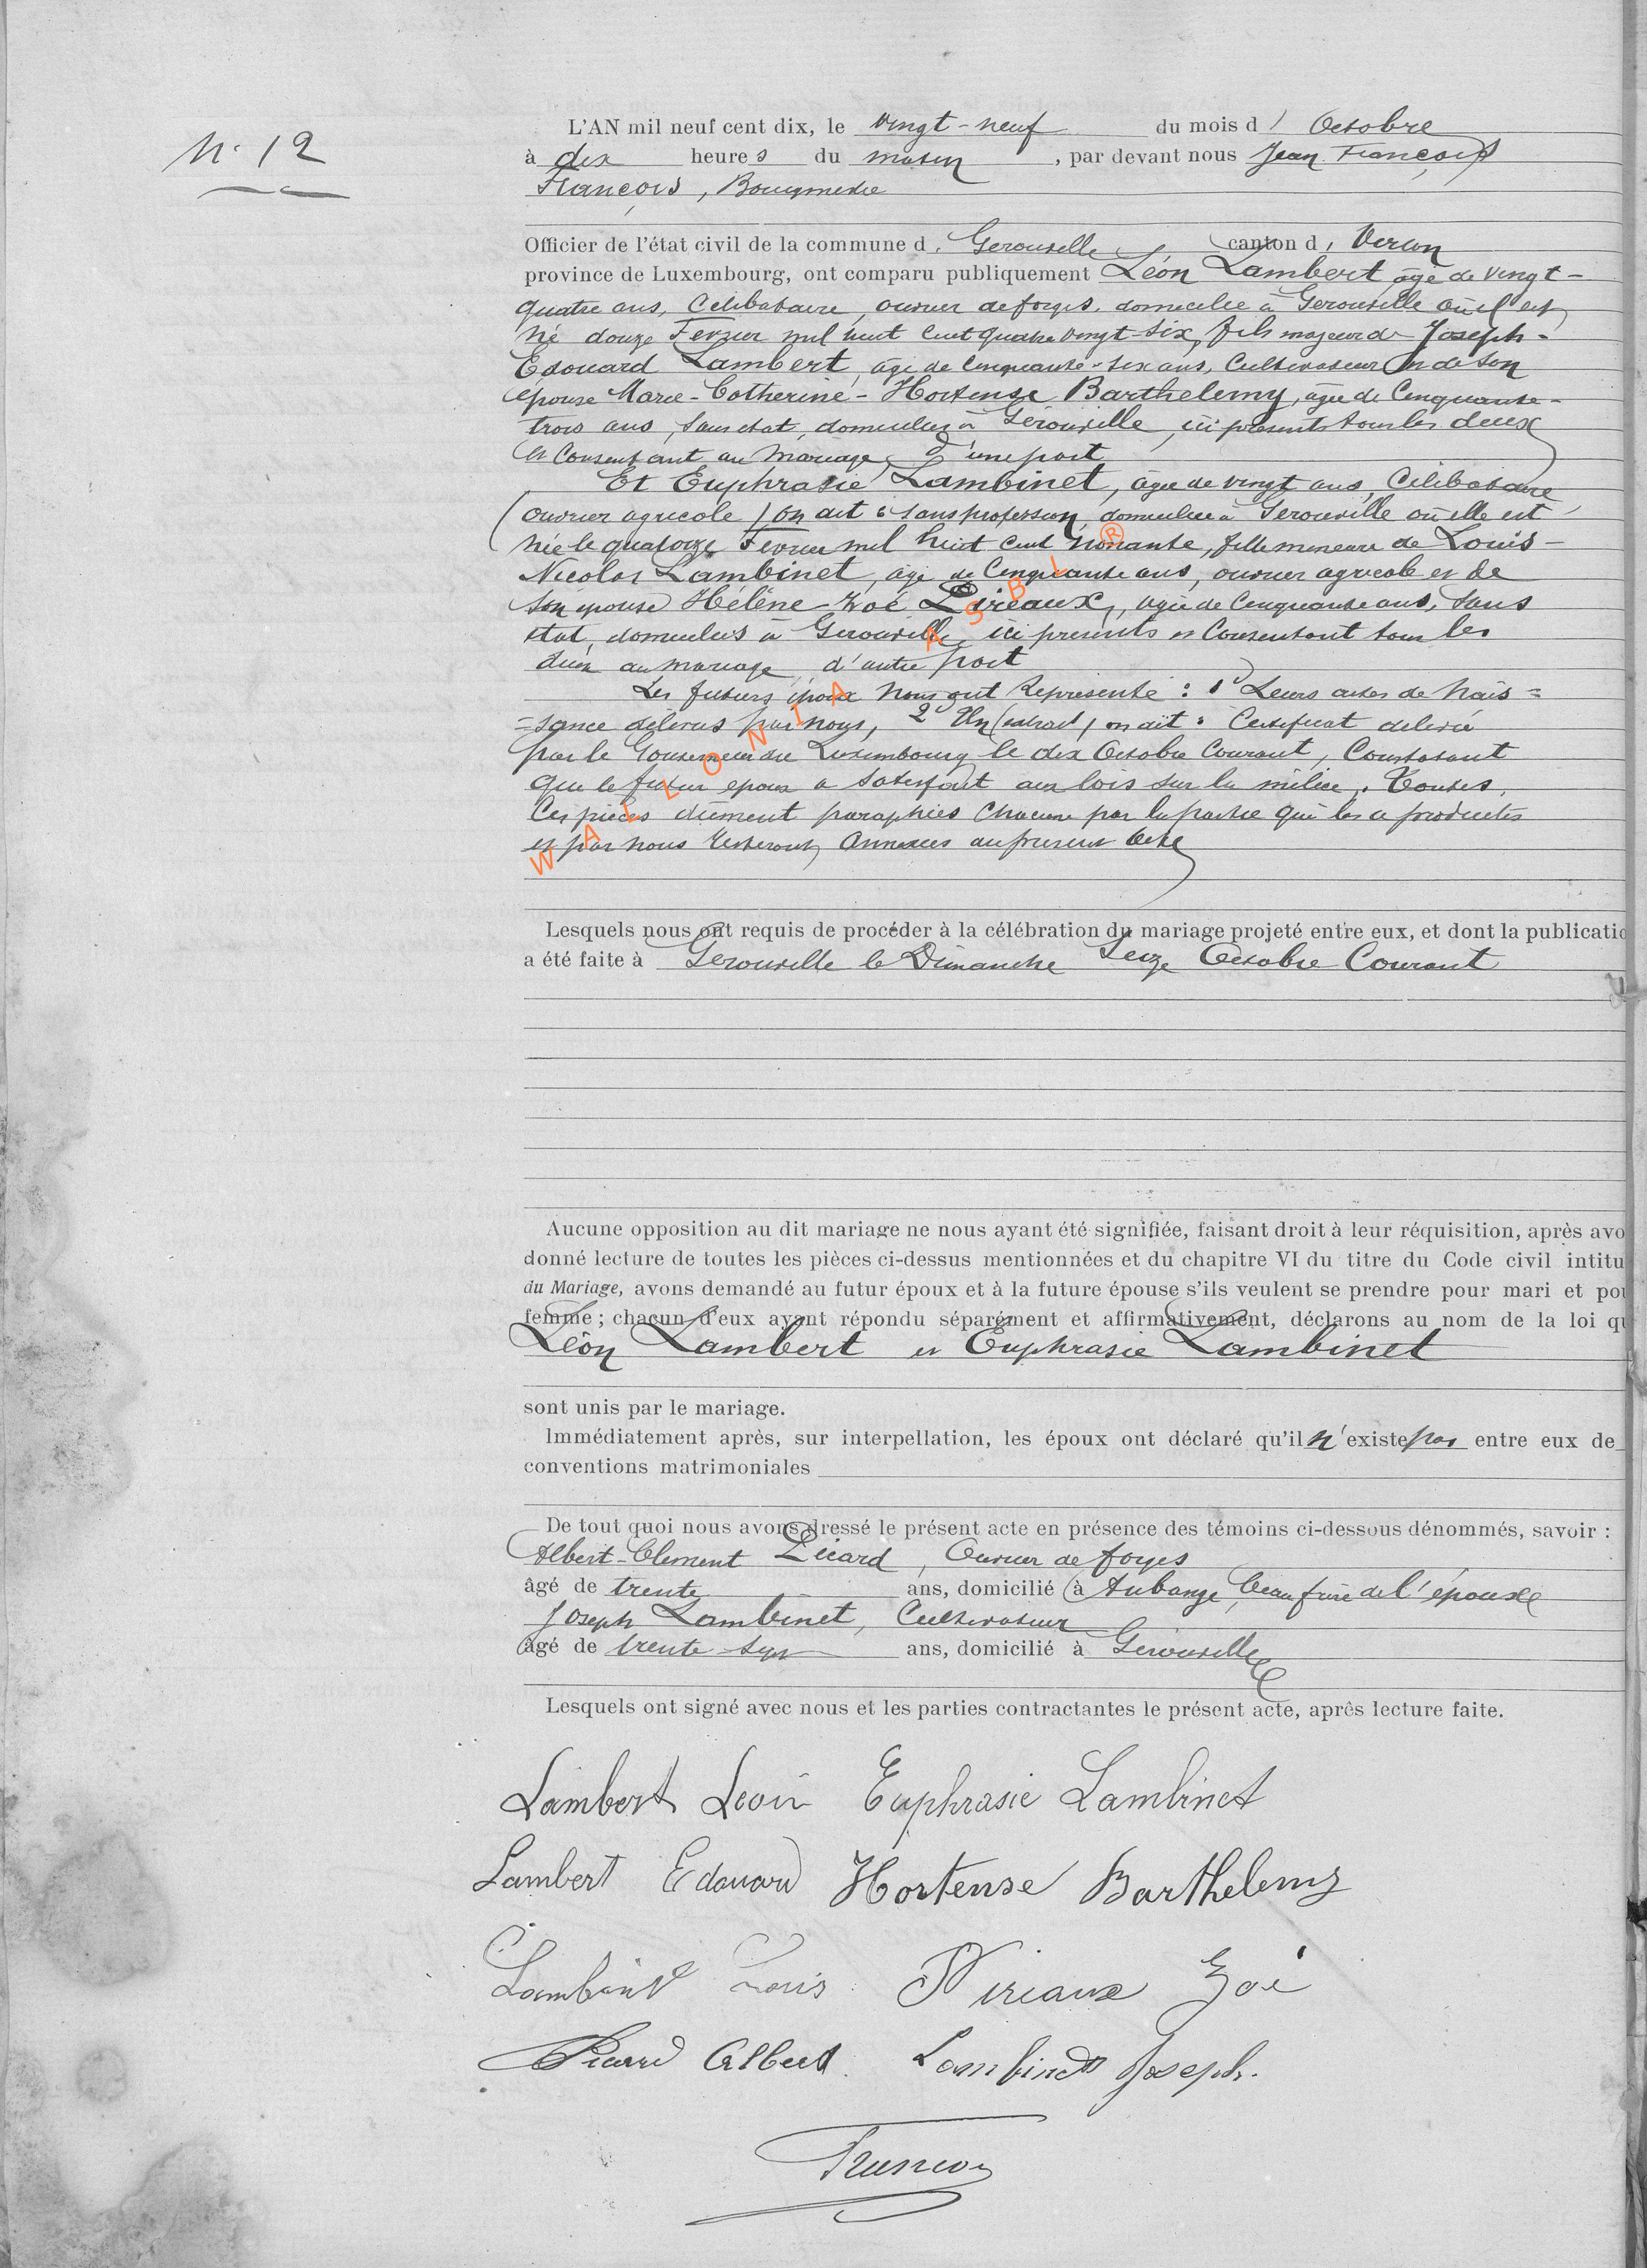 N. 12
L'AN mil neuf cent dix, le vingt-neuf du mois d' Octobre
à dix heures du matin, par devant nous Jean François
François, Bourgmestre
Officier de l'état civil de la commune d. Gerouville canton d. Virton
province de Luxembourg, ont comparu publiquement Léon Lambert agé de vingt-
quatre ans, Célibataire, ouvrier de forges, domicilié à Gerouville où il est
né douze Fevrier mil huit cent quatre vingt-six, fils majeur de Joseph-
Edouard Lambert, âgé de cinquante-six ans, Cultivateur et de son
épouse Marie-Catherine-Hortense Barthelemy, agée de Cinquante-
trois ans, sans état, domiciliés à Gérouville, ici présents tous les deux
et Consentant au Mariage, d'une part
Et Euphrasie Lambinet, âgée de vingt ans, Célibataire
(ouvrier agricole) on dit: sans profession, domiciliée à Gerouville où elle est
née le quatorze Fevrier mil huit cent nonante, fille mineure de Louis-
Nicolas Lambinet, âgé de Cinquante ans, ouvrier agricole et de
son épouse Hélène-Zoé Pireaux, agée de Cinquante ans, sans
état, domiciliés à Gerouville, ici présents et Consentant tous les
deux au mariage, d'autre part
Les futurs époux nous ont Représenté: 1° Leurs actes de nais=
=sance délivrés par nous, 2° Un (extrait) on dit: Certificat délivré
par le Gouverneur du Luxembourg le dix Octobre Courant, Constatant
que le futur époux a satisfait aux lois sur la milice. Toutes
Ces pièces dûment paraphées chacune par la partie qui les a produites
et par nous resteront annexées au présent acte
WALLONIA ASBL ®
Lesquels nous ont requis de procéder à la célébration du mariage projeté entre eux, et dont la publicatio
a été faite à Gerouville le Dimanche Seize Octobre Courant
Aucune opposition au dit mariage ne nous ayant été signifiée, faisant droit à leur réquisition, après avo
donné lecture de toutes les pièces ci-dessus mentionnées et du chapitre VI du titre du Code civil intitu
du Mariage, avons demandé au futur époux et à la future épouse s'ils veulent se prendre pour mari et pou
femme; chacun d'eux ayant répondu séparément et affirmativement, déclarons au nom de la loi qu
Léon Lambert et Euphrasie Lambinet
sont unis par le mariage.
Immédiatement après, sur interpellation, les époux ont déclaré qu'il n'existe pas entre eux de
conventions matrimoniales
De tout quoi nous avons dressé le présent acte en présence des témoins ci-dessous dénommés, savoir :
Albert-Clement Picard, Ouvrier de forges
âgé de trente ans, domicilié à Aubange, beau frère de l'épouse
Joseph Lambinet, Cultivateur
âgé de trente-sept ans, domicilié à Gérouville
Lesquels ont signé avec nous et les parties contractantes le présent acte, après lecture faite.
Lambert Leon Euphrasie Lambinet
Lambert Edouard Hortense Barthelemy
Lambinet Louis Piriaux Zoé
Picard Albert Lambinet Joseph.
François